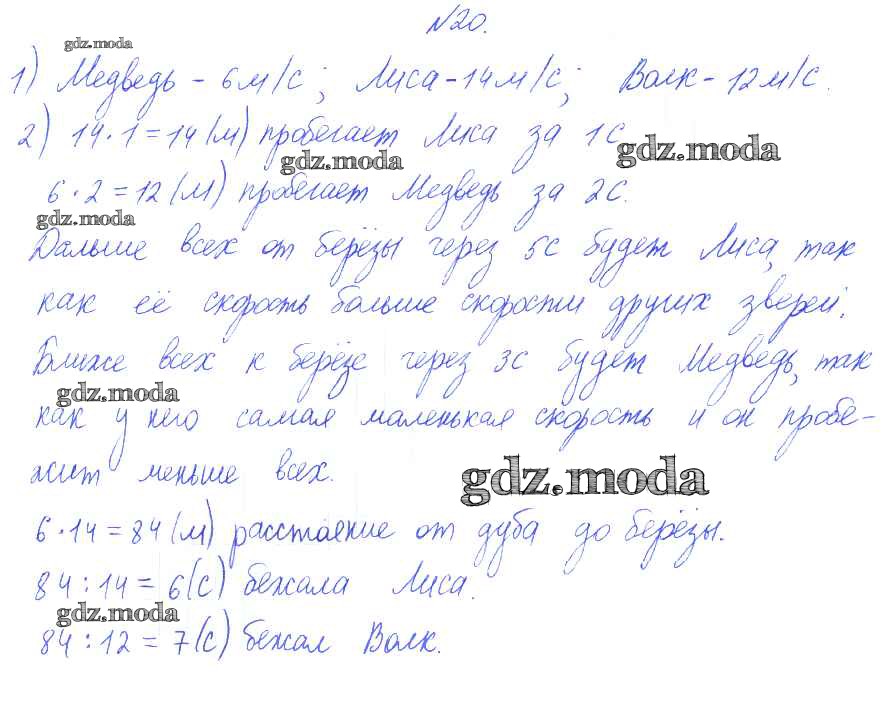 №20.
gdz.moda
1) Медведь - 6 м/с; Лиса - 14 м/с; Волк - 12 м/с.
2) 14 · 1 = 14 (м) пробегает Лиса за 1с.
gdz.moda gdz.moda
6 · 2 = 12 (м) пробегает Медведь за 2с.
gdz.moda
Дальше всех от берёзы через 5с будет Лиса, так
как её скорость больше скорости других зверей.
Ближе всех к берёзе через 3с будет Медведь, так
gdz.moda
как у него самая маленькая скорость и он пробе-
жит меньше всех.
gdz.moda
6 · 14 = 84 (м) расстояние от дуба до берёзы.
84 : 14 = 6 (с) бежала Лиса.
gdz.moda
84 : 12 = 7 (с) бежал Волк.